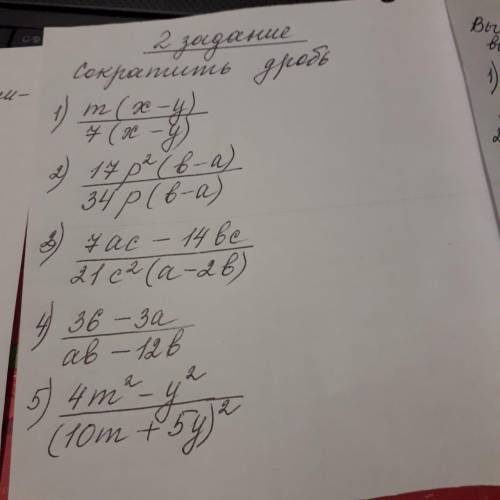 2 задание
Сократить дробь
1) m(x-y) / 7(x-y)
2) 17p²(в-а) / 34p(в-а)
3) 7ac - 14вc / 21c²(a-2в)
4) 36 - 3a / aв - 12в
5) 4m² - y² / (10m + 5y)²
Вы
1)